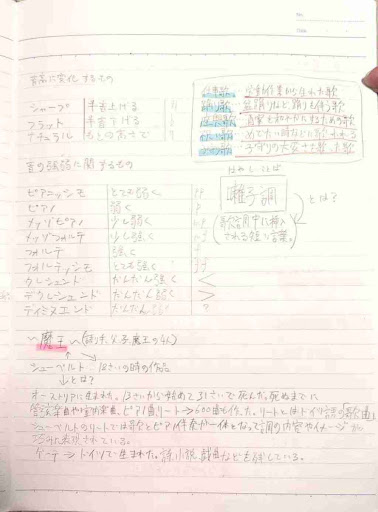 音高に変化するもの
シャープ 半音上げる
フラット 半音下げる
ナチュラル もとの高さで
仕事歌…労働作業から生まれた歌
踊り歌…盆踊りなど、踊りも伴う歌
座興歌
祝い歌…めでたい時などに歌われる
子守歌…子守りの大変さを歌った歌
音の強弱に関するもの
ピアニッシモ とても弱く pp
ピアノ 弱く p
メッゾピアノ 少し弱く mp
メッゾフォルテ 少し強く mf
フォルテ 強く f
フォルティッシモ とても強く ff
クレシェンド だんだん強く <
デクレシェンド だんだん弱く >
ディミヌエンド だんだん弱く
はやしことば
囃子詞 とは?
(歌詞中に挿入
される短い言葉。)
~魔王~
シューベルト 18さいの時の作品
↓とは?
オーストリアに生まれた。13さいから始めて31さいで死んだ。死ぬまでに
リート→600曲も作った。リートとはドイツ語の「歌曲」
シューベルトのリートでは歌とピアノ伴奏が一体となって詞の内容やイメージが
表現されている。
ゲーテ→ドイツで生まれた。詩、小説、戯曲なども残している。